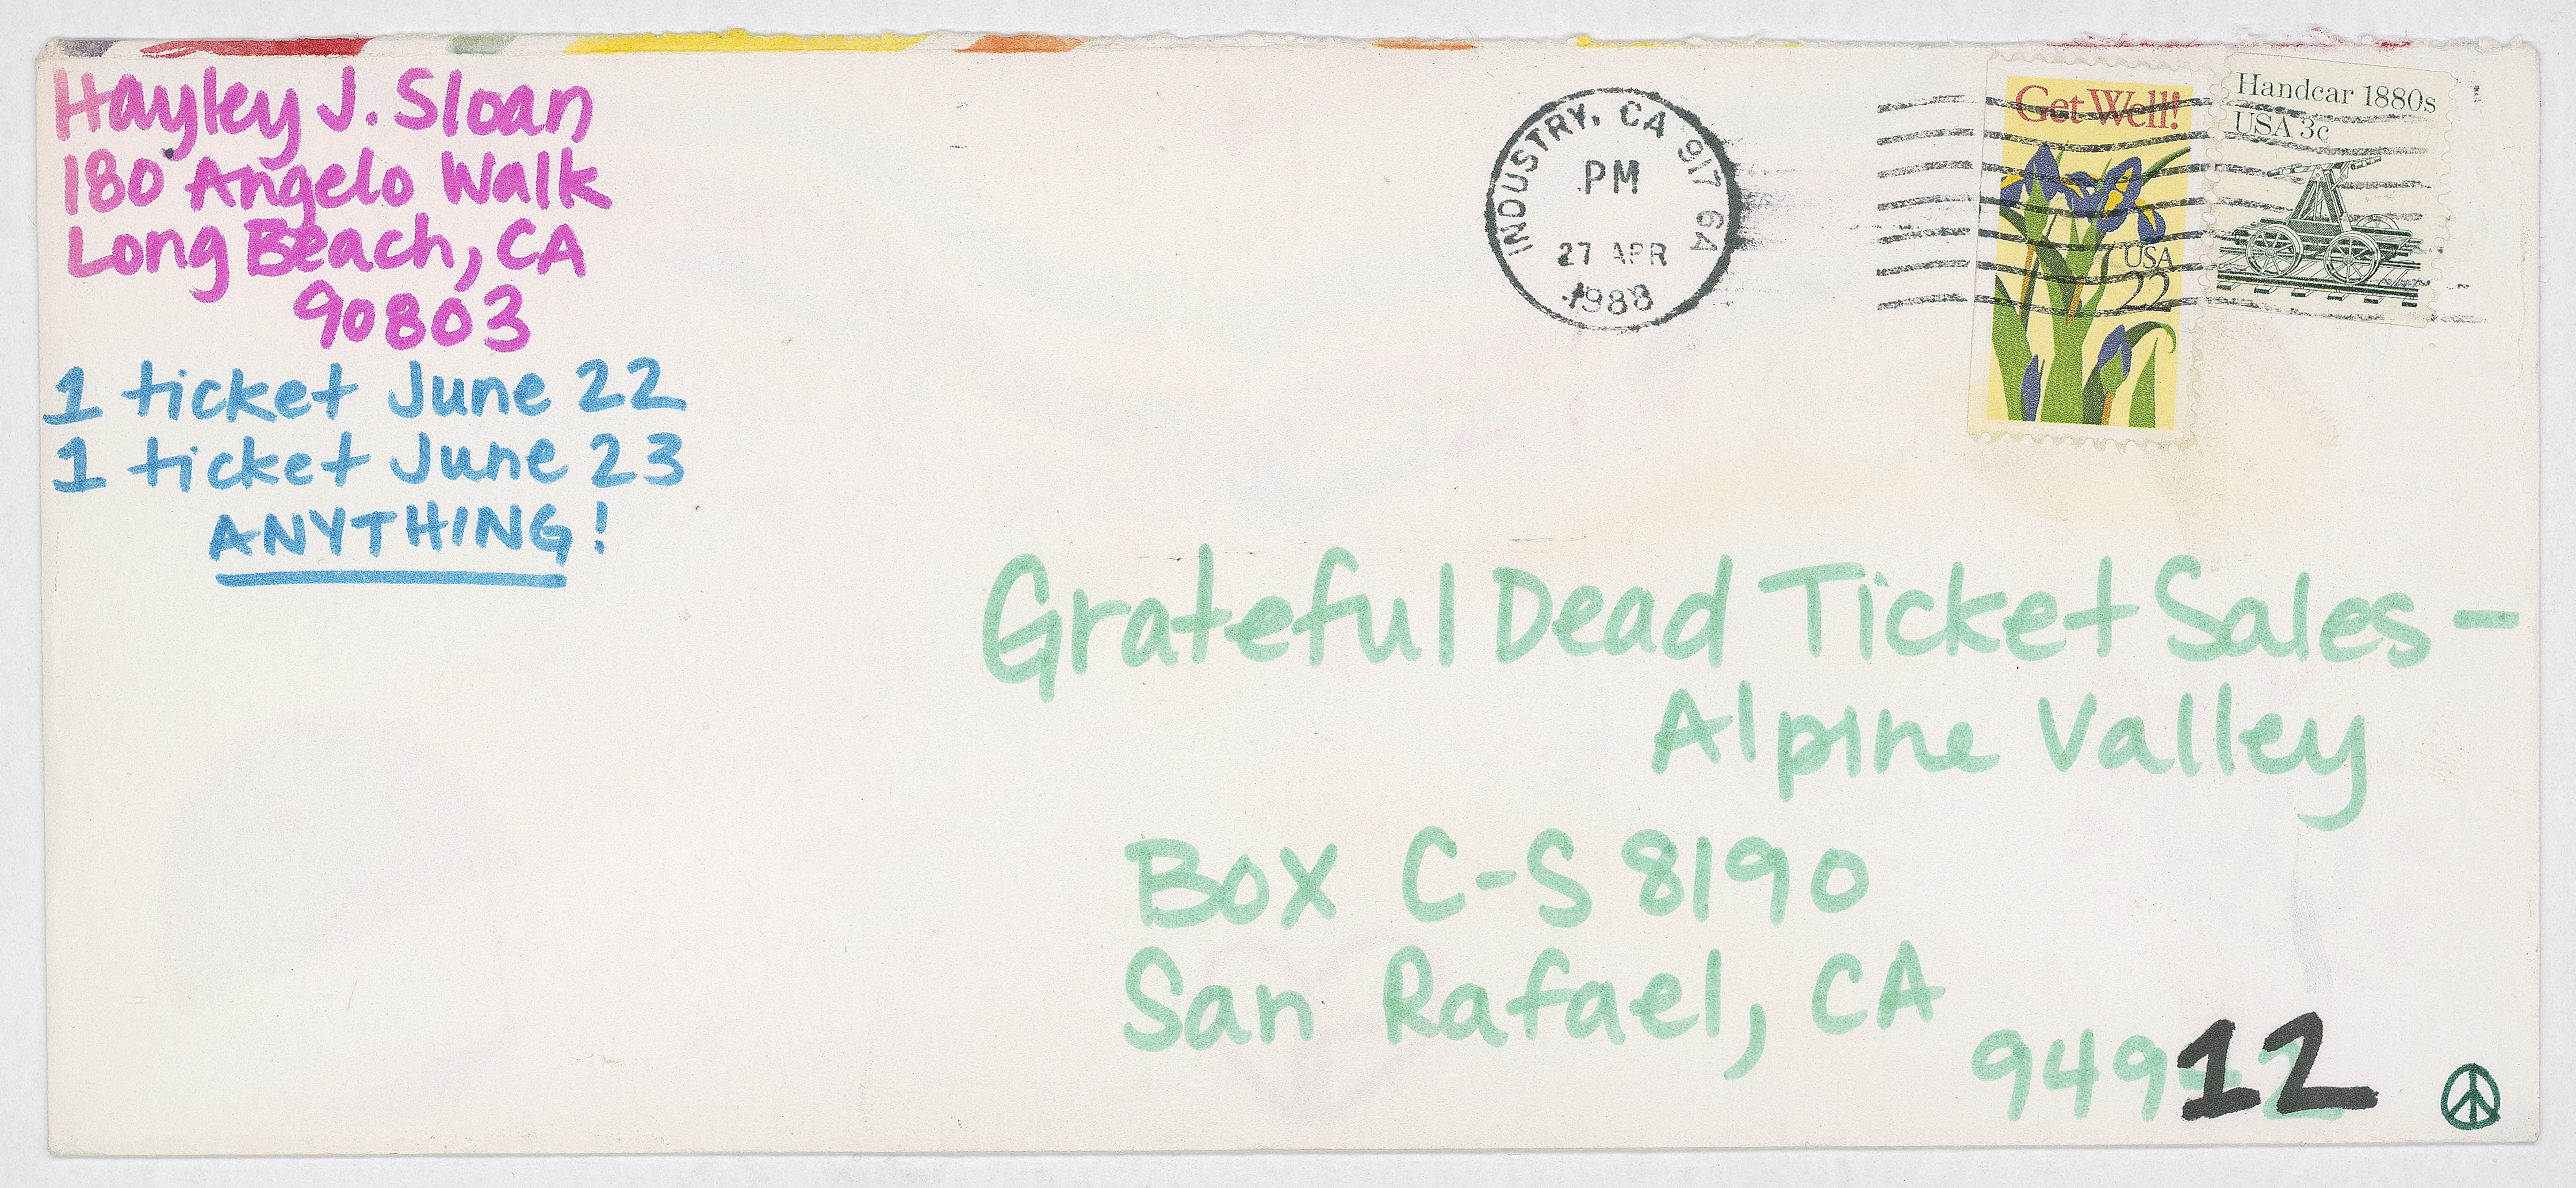 Hayley J. Sloan
180 Angelo Walk
Long Beach, CA
90803
1 ticket June 22
1 ticket June 23
ANYTHING!
INDUSTRY, CA 917 6A
PM
27 APR
1988
Get Well!
USA
22
Handcar 1880s
USA 3c
Grateful Dead Ticket Sales -
Alpine Valley
Box C-S 8190
San Rafael, CA
94912